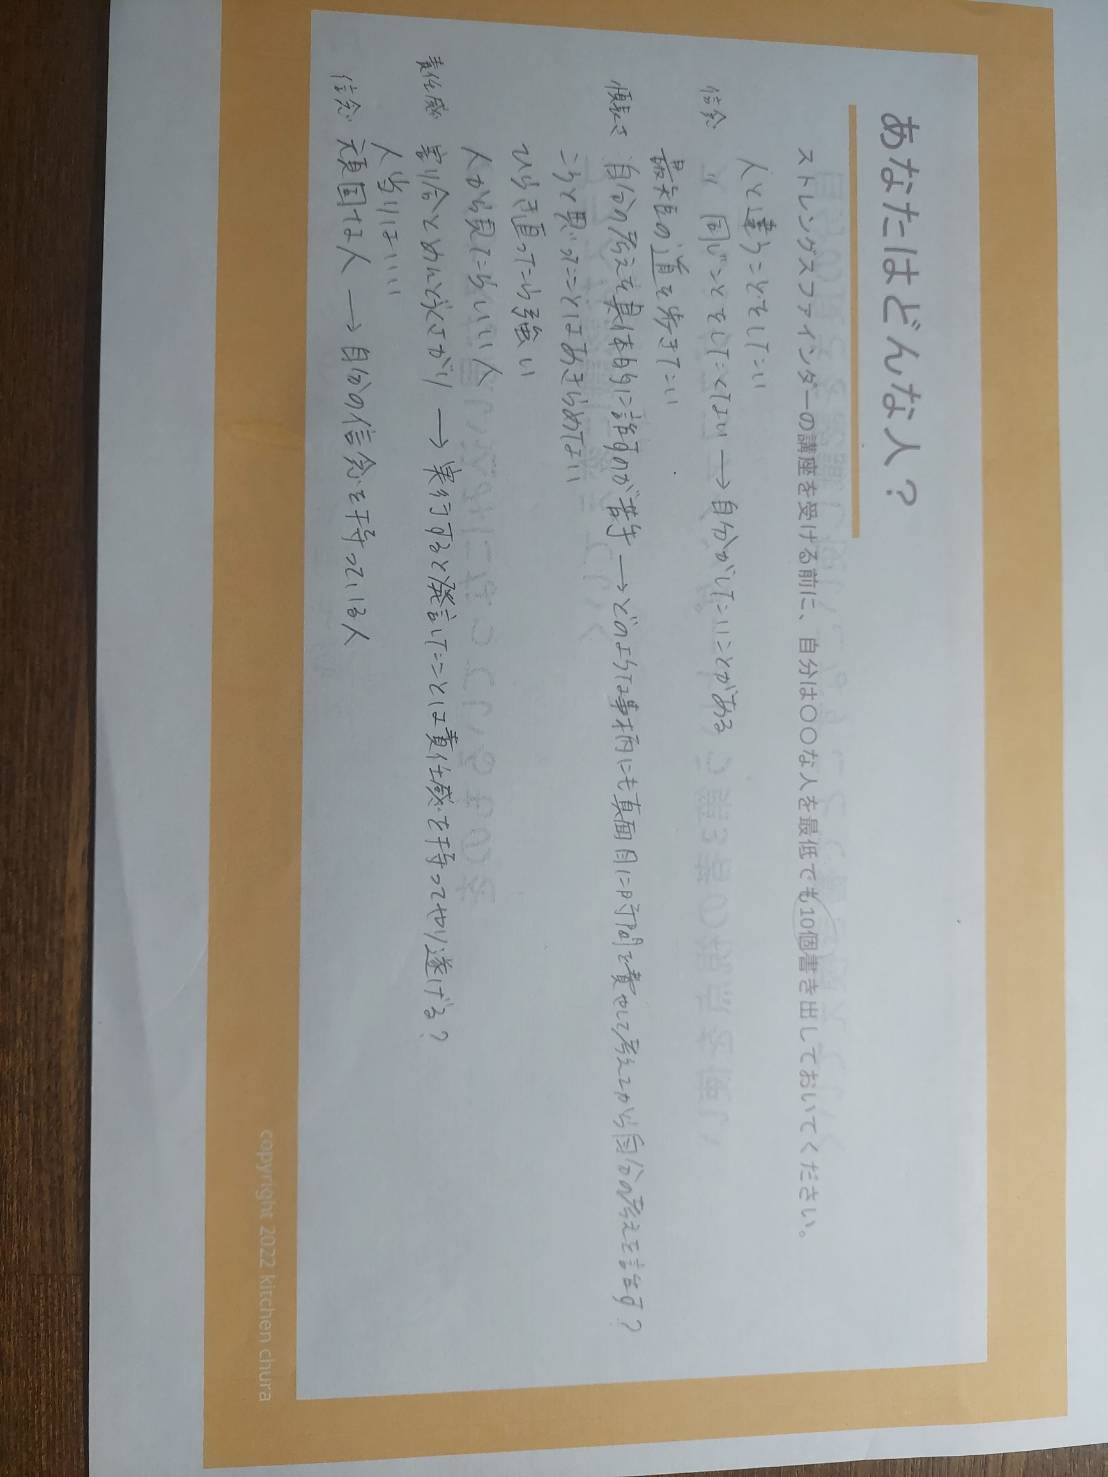 あなたはどんな人?
ストレングスファインダーの講座を受ける前に、自分は〇〇な人を最低でも10個書き出しておいてください。
人と違うことをしたい
信念 〃 同じことをしたくない → 自分がしたいことがある
最短の道を歩きたい
慎重さ 自分の考えを具体的に話すのが苦手 → どのような事柄にも真面目に時間を費やして考えてから自分の考えを話す?
こうと思ったことはあきらめない
ひらき直ったら強い
人から見たらいい人
責任感 割り合とめんどくさがり → 実行すると発言したことは責任感を持ってやり遂げる?
人当りはいい
信念 頑固な人 → 自分の信念を持っている人
copyright 2022 kitchen chura